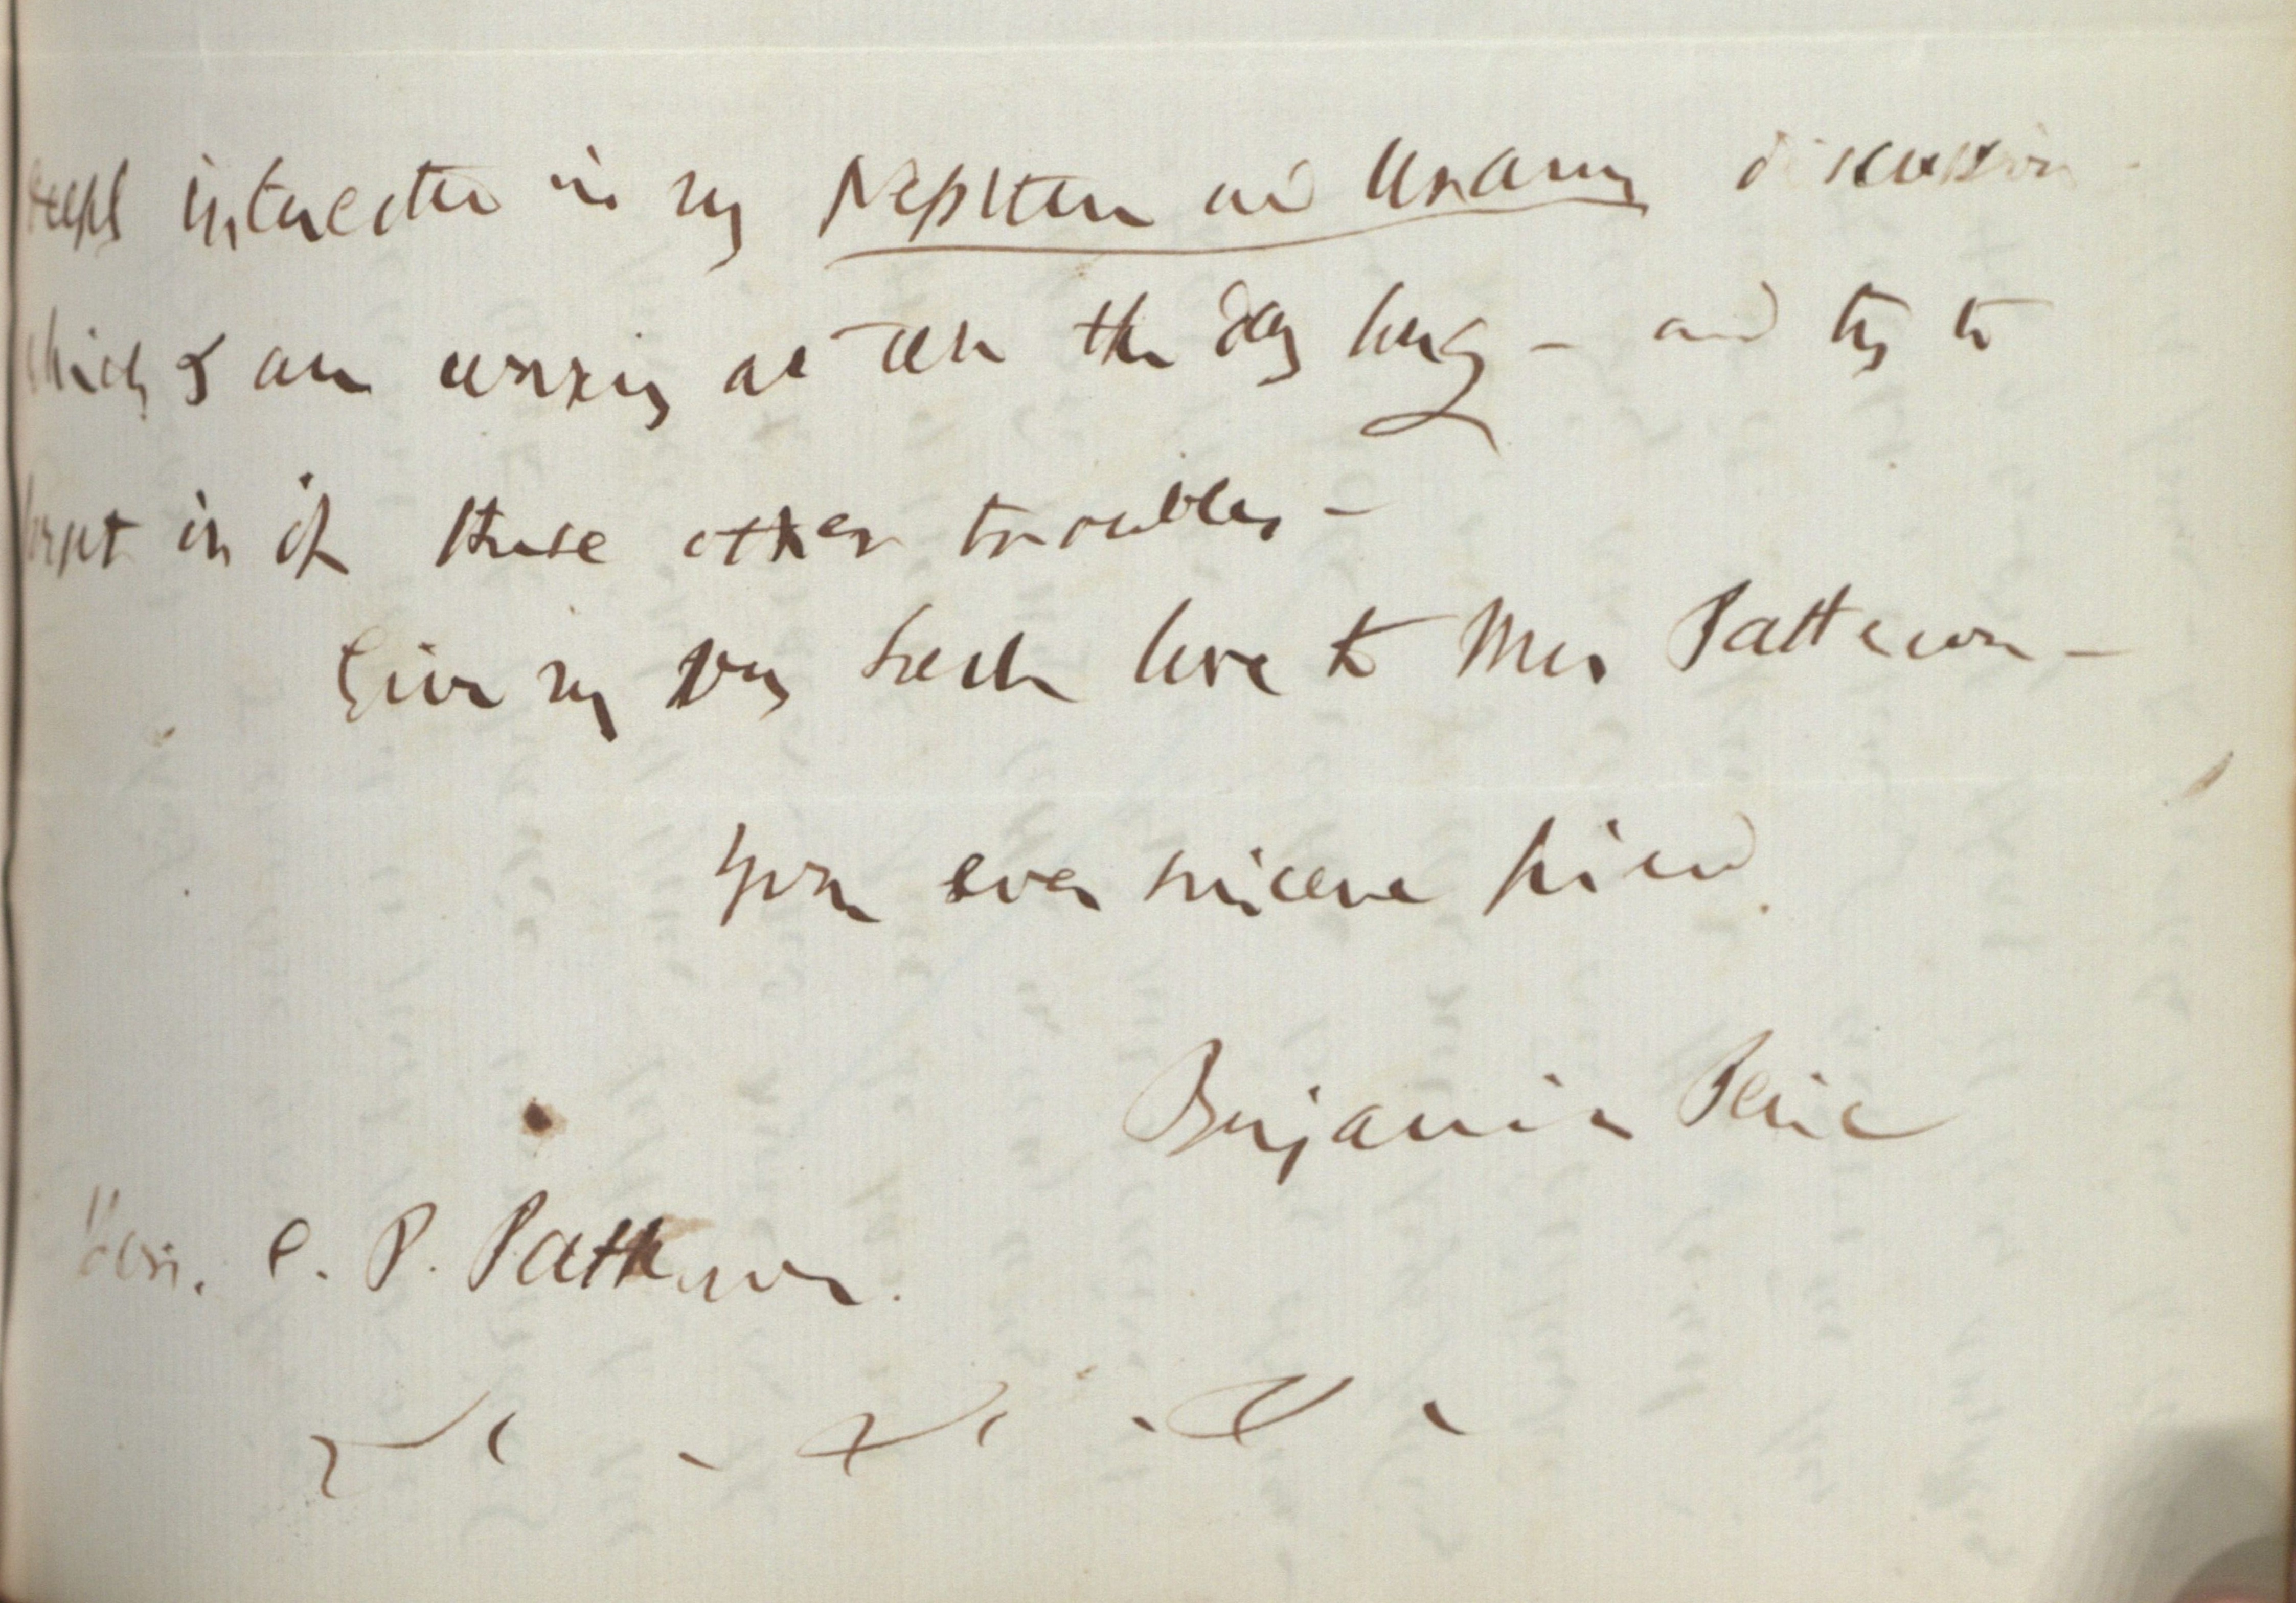 deeply interested in my Neptune and Uranus discussion
which I am working at all the day long – and try to
forget in it these other troubles –
Give my very best love to Mrs Patterson –
Your ever sincere friend
Benjamin Peirce
Hon. C. P. Patterson.